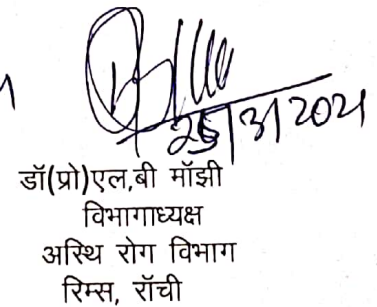 25/3/2021
डॉ(प्रो)एल,बी मॉझी
विभागाध्यक्ष
अस्थि रोग विभाग
रिम्स, रॉची